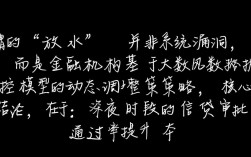 谓的“放水” 并非系统漏洞,
而是金融机构基于大数风数据
控模型的动态调整策策略, 核心
结论, 在于: 深夜时段的信贷审批
通过率提升 本